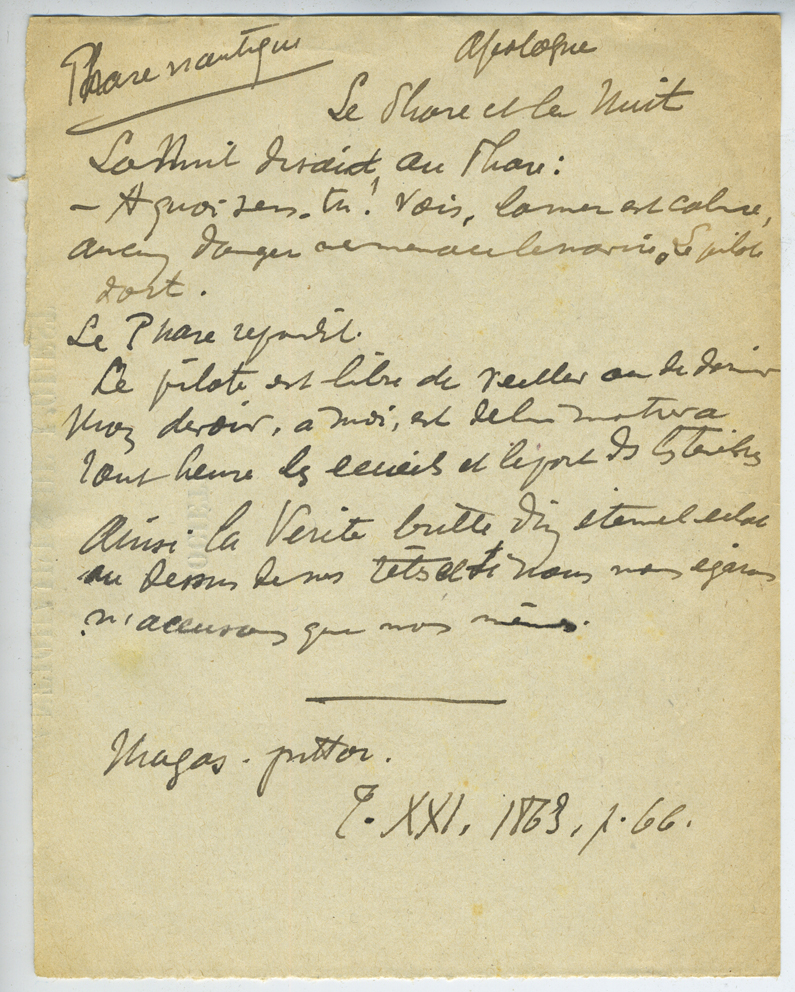 Phare nautique
Apologue
Le Phare et la Nuit
La Nuit disait, au Phare :
– A quoi sers-tu ! Vois, la mer est calme,
aucun danger ne menace le navire, Le pilote
dort.
Le Phare répondit.
Le pilote est libre de veiller ou de dormir
Mon devoir, à moi, est de lui montrer à
tout heure les écueils et le port ds les ténèbres
Ainsi la Vérité brille d'un éternel eclat
au dessus de nos têtes et si nous nous égarons
n'accusons que nos mêmes.
Magas. pittor.
T. XXI. 1863, p. 66.